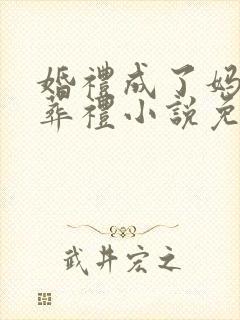 婚禮成了媽
葬禮小說免
武井宏之